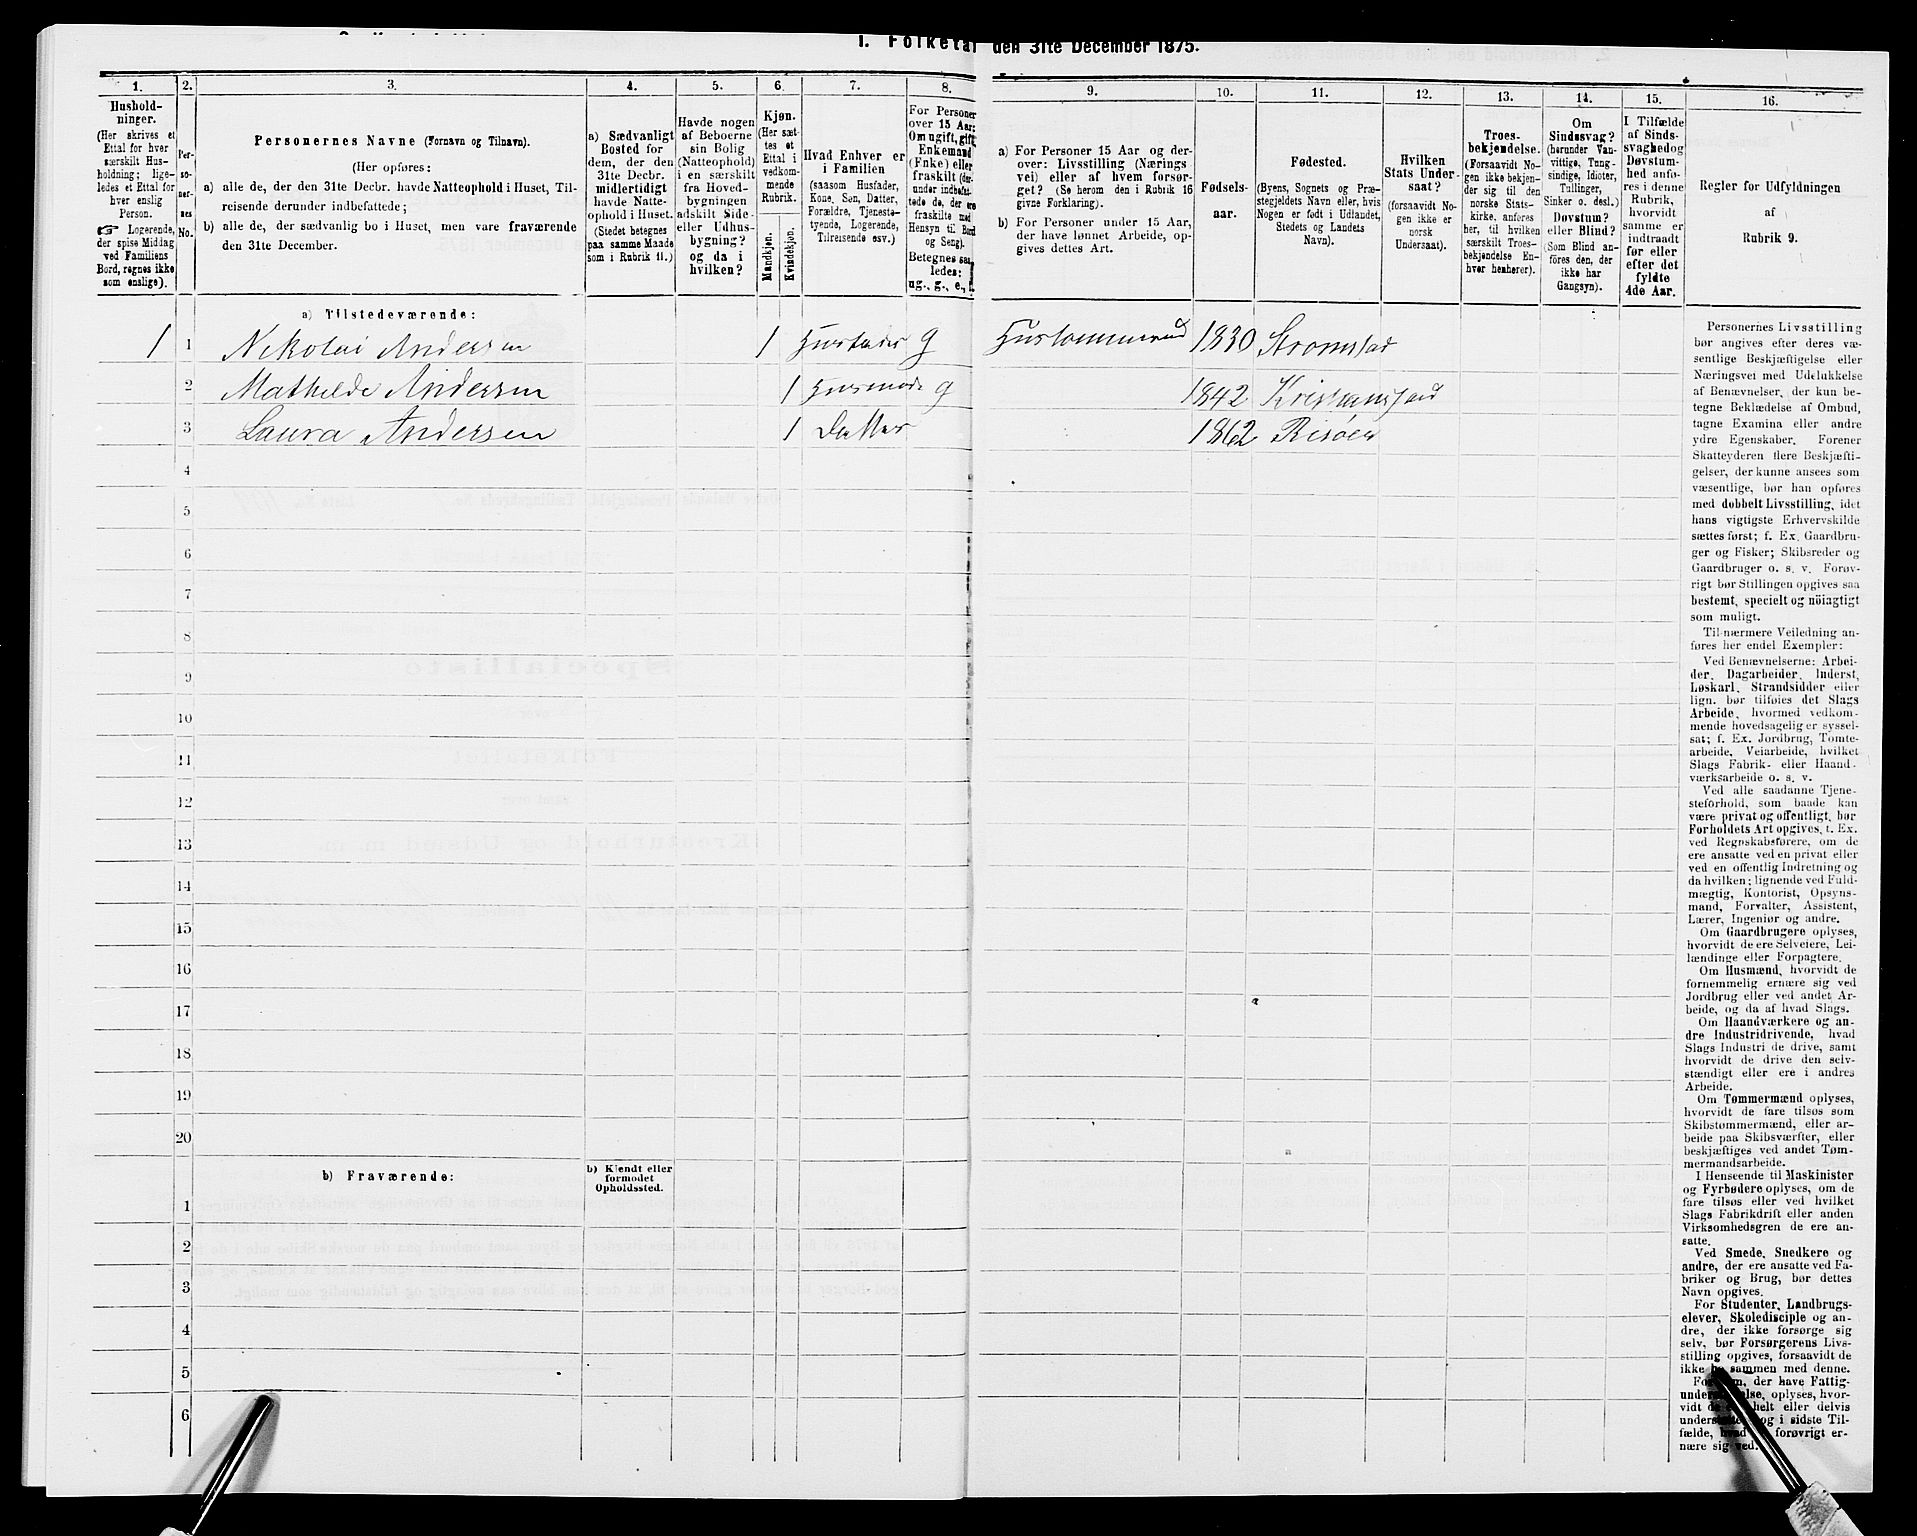 1. Folketal den 31te December 1875.
1. 2. 3. 4. 5. 6. 7. 8. 9. 10. 11. 12. 13. 14. 15. 16.
Hushold-
ninger.
(Her skrives et
Ettal for hver
særskilt Hus-
holdning; lige-
ledes et Ettal for
hver enslig
Person.
☞ Logerende,
der spise Middag
ved Familiens
Bord, regnes ikke
som enslige).
Per-
so-
ner-
nes
No.
Personernes Navne (Fornavn og Tilnavn).
(Her opføres:
a) alle de, der den 31te Decbr. havde Natteophold i Huset, Til-
reisende derunder indbefattede;
b) alle de, der sædvanlig bo i Huset, men vare fraværende
den 31te December.
a) Sædvanligt
Bosted for
dem, der den
31te Decbr.
midlertidigt
havde Natte-
ophold i Huset.
(Stedet betegnes
paa samme Maade
som i Rubrik 11.)
Havde nogen
af Beboerne
sin Bolig
(Natteophold)
i en særskilt
fra Hoved-
bygningen
adskilt Side-
eller Udhus-
bygning?
og da i
hvilken?
Kjøn.
(Her sæt-
tes et
Ettal i
vedkom-
mende
Rubrik.
Mandkjøn.
Kvindekjøn.
Hvad Enhver er
i Familien
(saasom Husfader,
Kone, Søn, Datter,
Forældre, Tjeneste-
tyende, Logerende,
Tilreisende osv.)
For Personer
over 15 Aar:
Om ugift, gift,
Enkemand
(Enke) eller
fraskilt (der-
under indbefat-
tede de, der ere
fraskilte med
Hensyn til Bord
og Seng).
Betegnes saa-
ledes:
ug., g., e., f.
a) For Personer 15 Aar og der-
over: Livsstilling (Nærings
vei) eller af hvem forsør-
get? (Se herom den i Rubrik 16
givne Forklaring).
b) For Personer under 15 Aar,
der have lønnet Arbeide, op-
gives dettes Art.
Fødsels-
aar.
Fødested.
(Byens, Sognets og Præ-
stegjeldets Navn eller, hvis
Nogen er født i Udlandet,
Stedets og Landets
Navn).
Hvilken
Stats Under-
saat?
(forsaavidt No-
gen ikke er
norsk
Undersaat).
Troes-
bekjendelse.
(Forsaavidt No-
gen ikke bekjen-
der sig til den
norske Stats-
kirke, anføres
her, til hvilken
særskilt Troes-
bekjendelse En-
hver henhører).
Om
Sindssvag?
(herunder Van-
vittige, Tung-
sindige, Idioter,
Tullinger,
Sinker o. desl.)
Døvstum?
eller Blind?
(Som Blind an-
føres den, der
ikke har
Gangsyn).
I Tilfælde
af Sinds-
svaghed og
Døvstum-
hed anfø-
res i denne
Rubrik,
hvorvidt
samme er
indtraadt
før eller
efter det
fyldte
4de Aar.
Regler for Udfyldningen
af
Rubrik 9.
a) Tilstedeværende:
1 1 Nikolai Andersen 1 Husfader g Hustømmermd 1830 Stromstad
2 Mathilde Andersen 1 Husmode g 1842 Kristiansstad
3 Laura Andersen 1 Datter 1862 Risöer
4
5
6
7
8
9
10
11
12
13
14
15
16
17
18
19
20
b) Fraværende:
b) Kjendt eller
formodet
Opholdssted.
1
2
3
4
5
6
Personernes Livsstilling
bør angives efter deres væ-
sentlige Beskjæftigelse eller
Næringsvei med Udelukkelse
af Benævnelser, der kun be-
tegne Beklædelse af Ombud,
tagne Examina eller andre
ydre Egenskaber. Forener
Skatteyderen flere Beskjæfti-
gelser, der kunne ansees som
væsentlige, bør han opføres
med dobbelt Livsstilling, idet
hans vigtigste Erhvervskilde
sættes først; f. Ex. Gaardbru-
ger og Fisker; Skibsreder og
Gaardbruger o. s. v. Forøv-
rigt bør Stillingen opgives saa
bestemt, specielt og nöiagtigt
som muligt.
Til nærmere Veiledning an-
føres her endel Exempler:
Ved Benævnelserne: Arbei-
der, Dagarbeider, Inderst,
Løskarl, Strandsidder eller
lign. bør tilføies det Slags
Arbeide, hvormed vedkom-
mende hovedsagelig er syssel-
sat; f. Ex. Jordbrug, Tomte-
arbeide, Veiarbeide, hvilket
Slags Fabrik- eller Haand-
værksarbeide o. s. v.
Ved alle saadanne Tjene-
steforhold, som baade kan
være privat og offentligt, bør
Forholdets Art opgives, t. Ex.
ved Regnskabsførere, om de
ere ansatte ved en privat eller
ved en offentlig Indretning og
da hvilken; lignende ved Fuld-
mægtig, Kontorist, Opsyns-
mand, Forvalter, Assistent,
Lærer, Ingeniør og andre.
Om Gaardbrugere oplyses,
hvorvidt de ere Selveiere, Lei-
lændinge eller Forpagtere.
Om Husmænd, hvorvidt de
fornemmelig ernære sig ved
Jordbrug eller ved andet Ar-
beide, og da af hvad Slags.
Om Haandværkere og an-
dre Industridrivende, hvad
Slags Industri de drive, samt
hvorvidt de drive den selv-
stændigt eller ere i andres
Arbeide.
Om Tømmermænd oplyses,
hvorvidt de fare tilsøs som
Skibstømmermænd, eller ar-
beide paa Skibsværfter, eller
beskjæftiges ved andet Tøm-
mermandsarbeide.
I Henseende til Maskinister
og Fyrbødere oplyses, om de
fare tilsøs eller ved hvilket
Slags Fabrikdrift eller anden
Virksomhedsgren de ere an-
satte.
Ved Smede, Snedkere og
andre, der ere ansatte ved Fa-
briker og Brug, bør dettes
Navn opgives.
For Studenter, Landbrugs-
elever, Skoledisciple og an-
dre, der ikke forsørge sig
selv, bør Forsørgerens Livs-
stilling opgives, forsaavidt de
ikke bo sammen med denne.
For dem, der have Fattig-
understøttelse, oplyses, hvor-
vidt de ere helt eller delvis
understøttede og i sidste Til-
fælde, hvad de forøvrigt er-
nære sig ved.